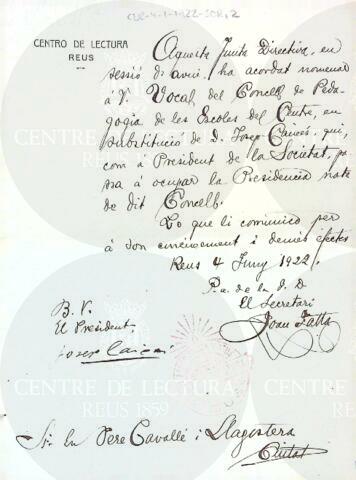 CENTRO DE LECTURA
REUS
Aquesta Junta Directiva, en
sessió d'avui, ha acordat nomenar
á V. Vocal del Concell de Peda-
gogia de les Escoles del Centre, en
substitució de D. Josep Caixés, qui,
com á President de la Societat, pa-
sa á ocupar la Presidencia nata
de dit Concell.
Lo que li comunico per
á son coneixement i demés efectes
Reus 4 Juny 1922.
P. a. de la J. D.
El Secretari
B. V.
El President
Josep
Joan
Sr. En Pere Cavallé i Llagostera
Ciutat
CENTRE DE LECTURA
REUS 1859